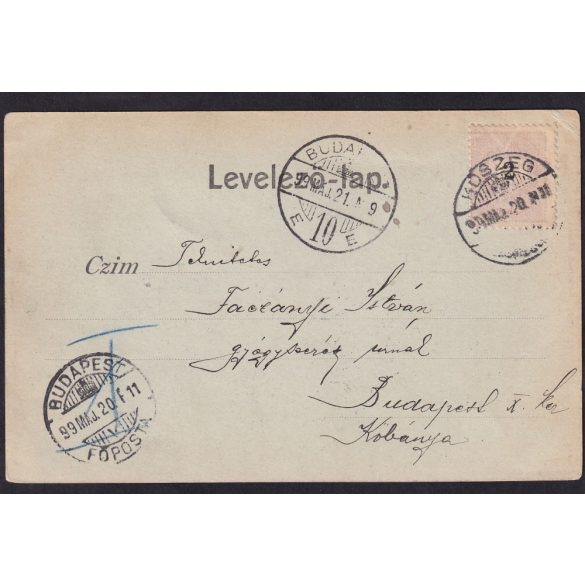 2
KŐSZEG
99 MÁJ. 20. N 11
BUDAP
99 MÁJ. 21. N 9
10
E E
Levelező-lap.
Czim Tekintetes
István
gyógyszerész urnak
Budapest X. ker
Kőbánya
BUDAPEST
99 MÁJ. 20. F 11
FŐPOSTA
1